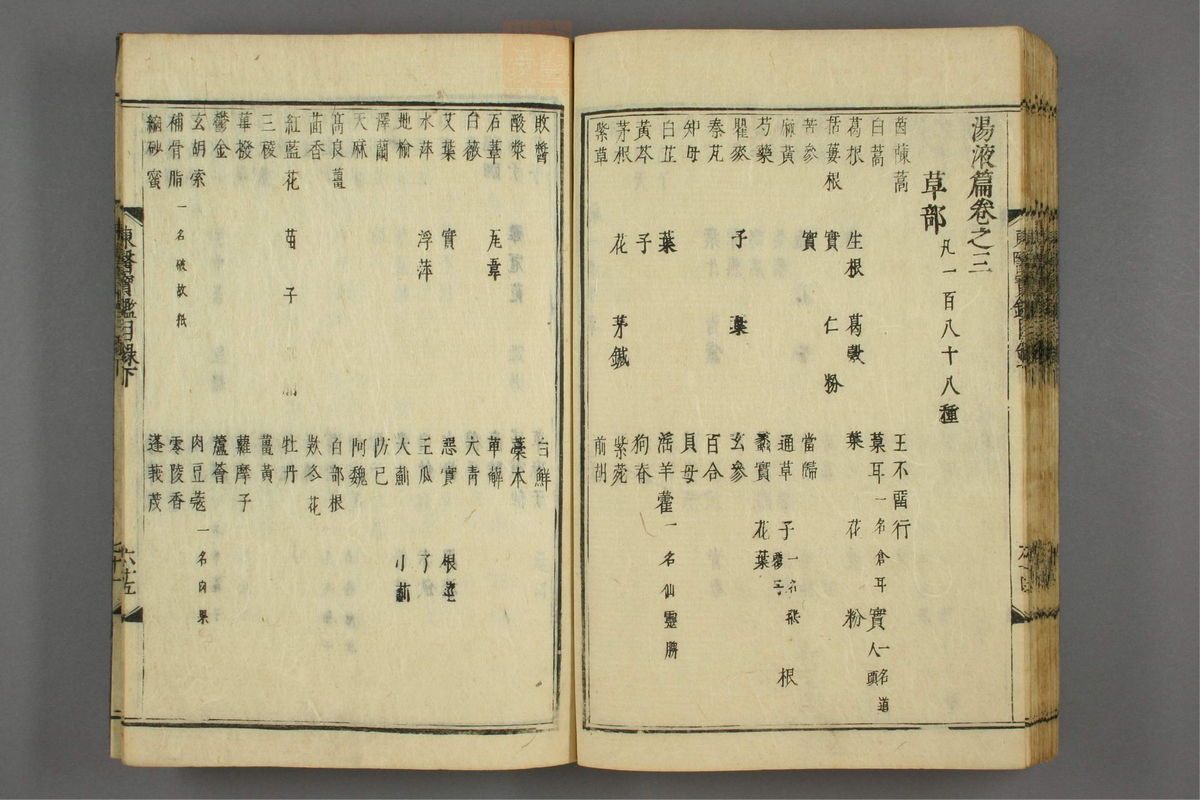 湯液篇卷之三
草部 凡一百八十八種
茵蔯蒿 王不留行
白蒿 葈耳 一名倉耳 實 一名道人頭
葛根 生根 葛穀 葉 花 粉
栝蔞根 實 仁 粉
苦參 實 當歸
麻黃 通草 子 一名鷰覆子 根
芍藥 蠡實 花葉
瞿麥 子 葉 玄參
秦芃 百合
知母 貝母
白芷 葉 淫羊藿 一名仙靈脾
黃芩 子 狗脊
茅根 花 茅鍼 紫菀
紫草 前胡
敗醬 白鮮
酸漿 藁本
石葦 瓦葦 萆薢
白薇 大青
艾葉 實 惡實 根莖
水萍 浮萍 王瓜 子
地榆 大薊 小薊
澤蘭 防己
天麻 阿魏
高良薑 百部根
茴香 款冬花
紅藍花 苗 子 牡丹
三稜 薑黃
蓽撥 蘿摩子
鬱金 蘆薈
玄胡索 肉豆蔻 一名肉果
補骨脂 一名破故紙 零陵香
縮砂蜜 蓬莪茂
東醫寶鑑目錄下
六十五